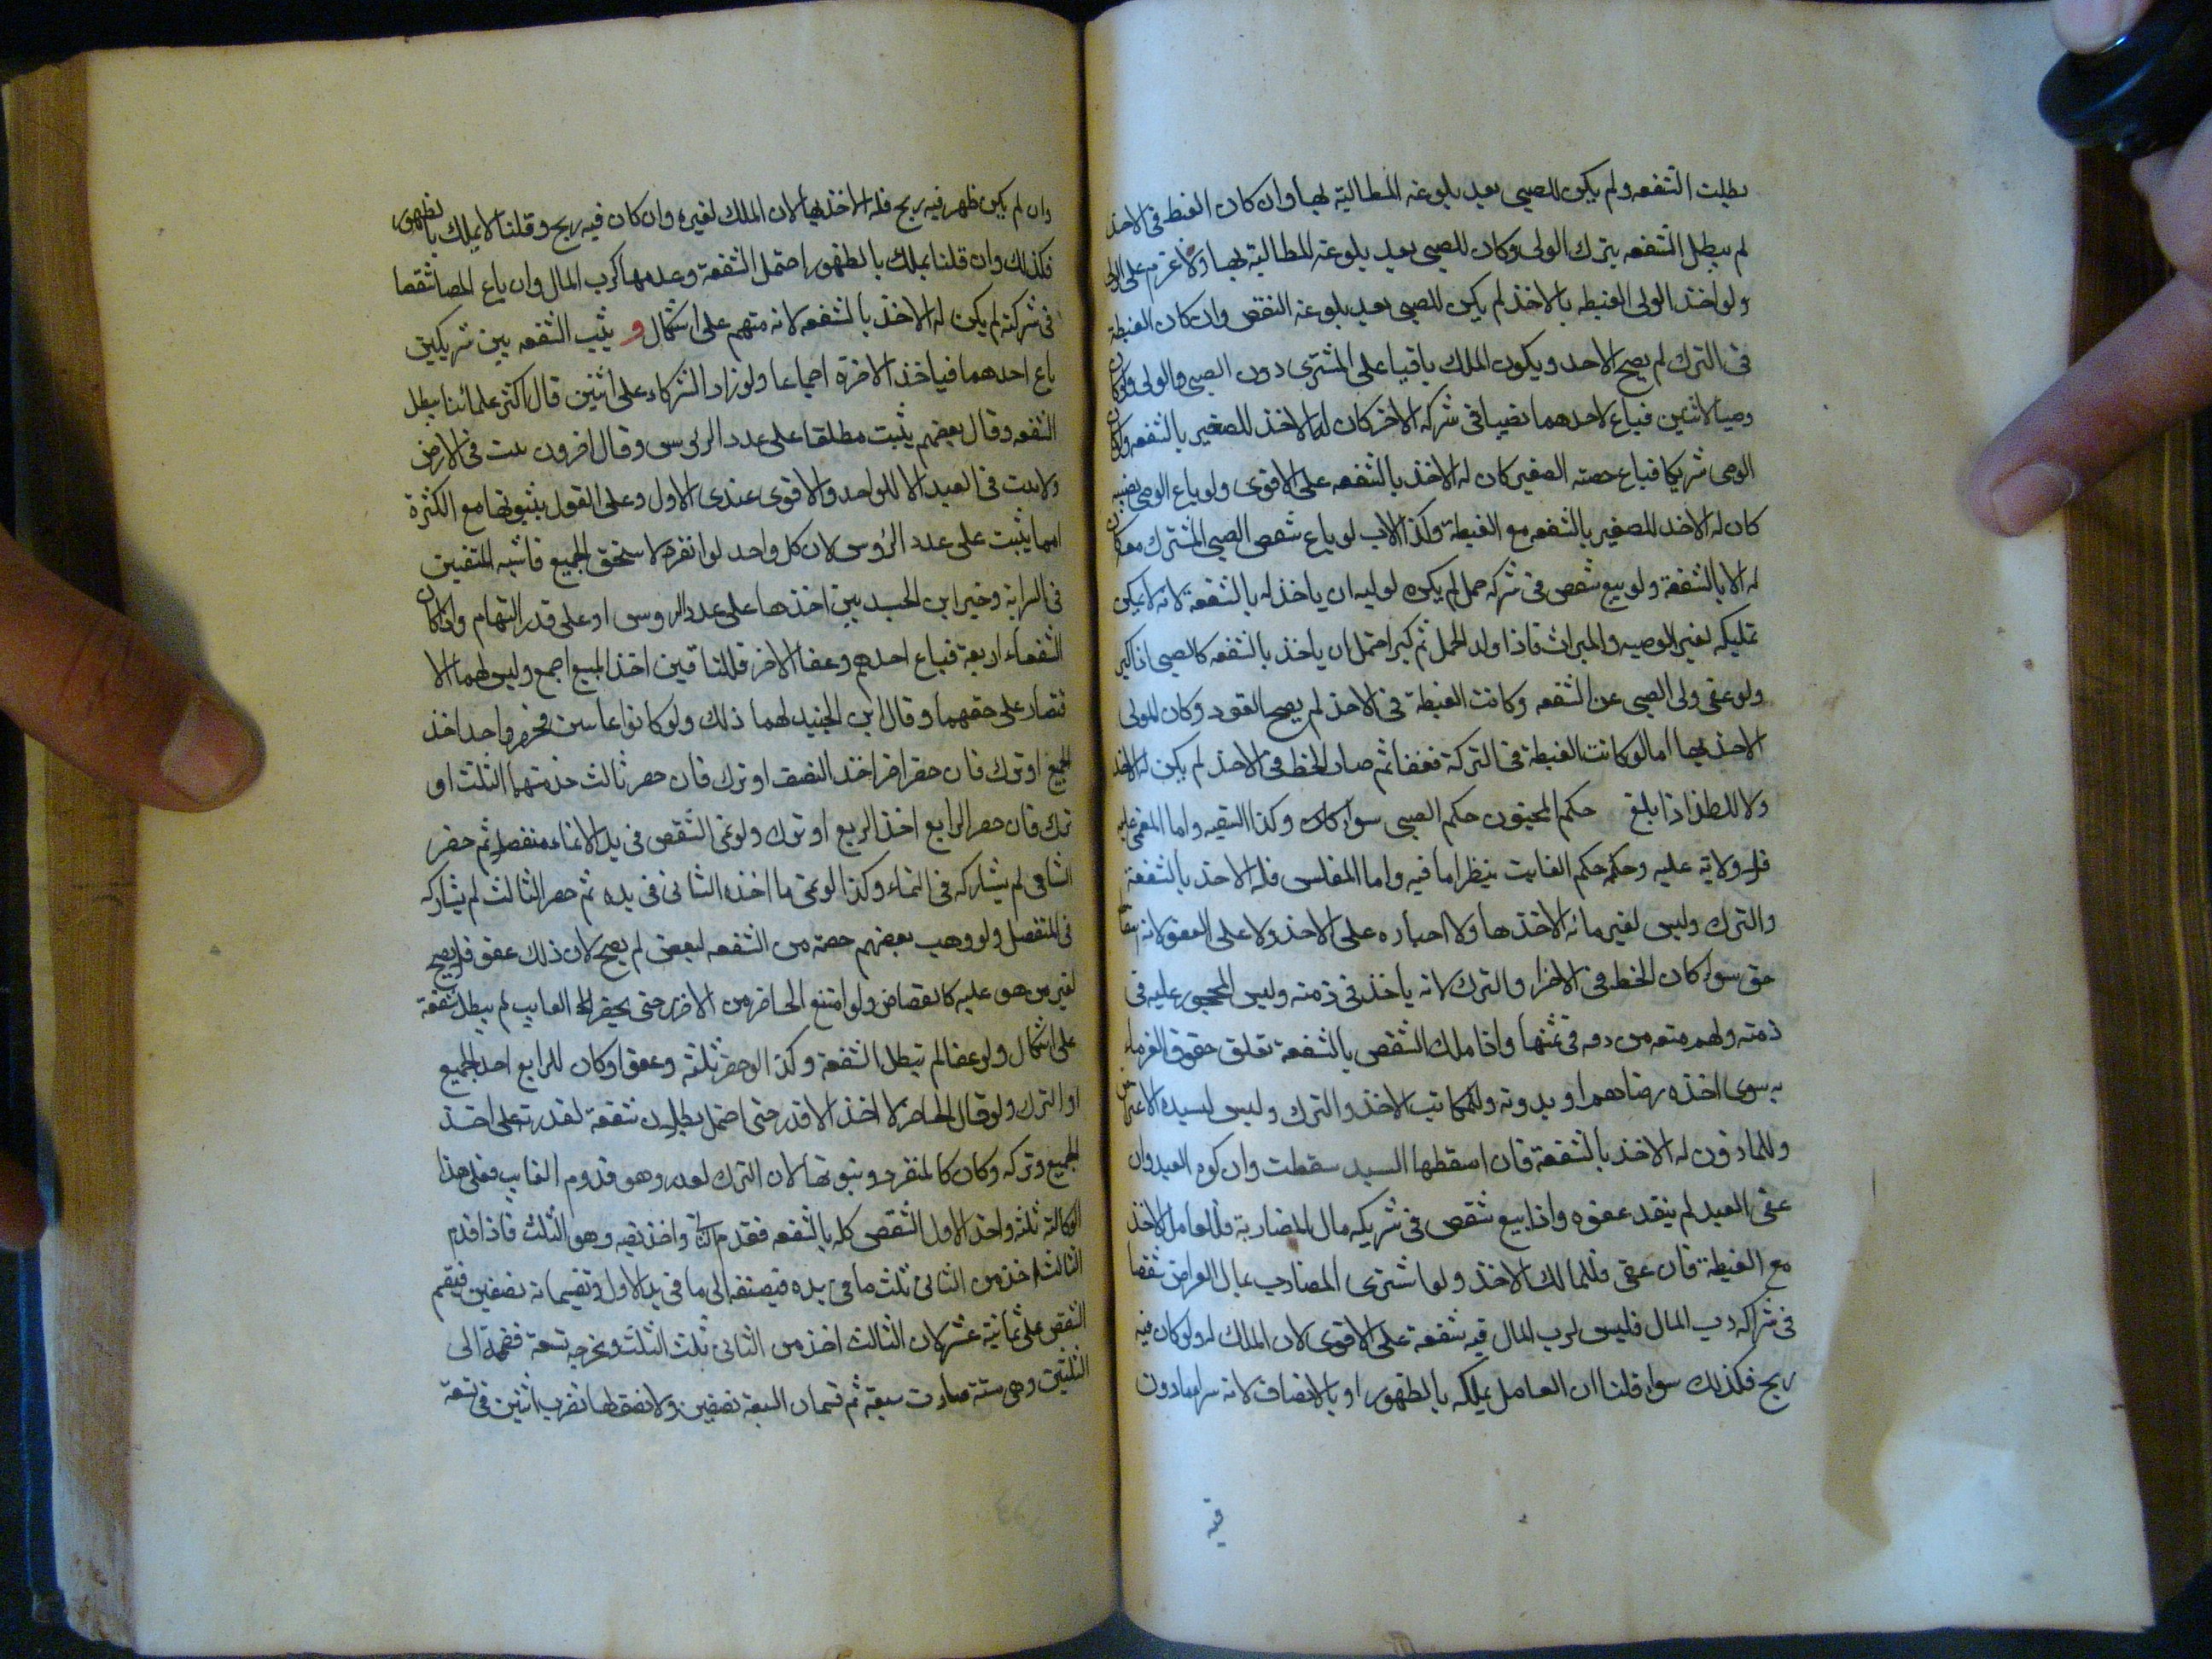 بطلت الشفعه ولم يكن للصبى بعد بلوغه المطالبة بها وان كان الغبطه فى الاخذ
لم يبطل الشفعه بترك الولى وكان للصبى بعد بلوغه المطالبة بها ولا غرم على الولى
ولو اخذ الولى الغبطه بالاخذ لم يكن للصبى بعد بلوغه النقض وان كان الغبطة
فى الترك لم يصح الاخذ ويكون الملك باقيا على المشترى دون الصبى والولى ولو كان
وصيا لاثنين فباع لاحدهما نصيبا فى شركه الاخر كان له الاخذ للصغير بالشفعه ولو كان
الوصى شريكا فباع حصته الصغير كان له الاخذ بالشفعه على الاقوى ولو باع الوصى نصيبه
كان له الاخذ للصغير بالشفعه مع الغبطة وكذا الاب لو باع شقص الصبى المشترك معه كان
له الا بالشفعة ولو بيع شقص فى شركه حمل لم يكن لوليه ان ياخذ له بالشفعة لانه لا يمكن
تمليكه لغير الوصيه والميراث فاذا ولد الحمل ثم كبر احتمل ان ياخذ بالشفعه كالصبى اذا كبر
ولو عفى ولى الصبى عن الشفعه وكانت الغبطة فى الاخذ لم يصح العفو وكان للولى
الاخذ بها اما لو كانت الغبطة فى التركة فعفا ثم صار الحظ فى الاخذ لم يكن له الاخذ
ولا للطفل اذا بلغ حكم المجنون حكم الصبى سواء كان وكذا السفيه واما المغمى عليه
فله ولاية عليه وحكمه حكم الغايب ينظر اما فيه واما المفلس فله الاخذ بالشفعة
والترك وليس لغرمائه الاخذ بها ولا اجباره على الاخذ ولا على العفو لانه اسقاط
حق سواء كان الحظ فى الاخذ او الترك لانه ياخذ فى ذمته وليس المحجور عليه فى
ذمته ولهم منعه من دفعه فى ثمنها واذا ملك الشقص بالشفعة تعلق حقوق الغرماء
به سوى اخذه برضاهم او بدونه وللمكاتب الاخذ والترك وليس لسيده الاعتراض
وللماذون له الاخذ بالشفعة فان اسقطها السيد سقطت وان كره العبد وان
عفى العبد لم ينفذ عفوه واذا بيع شقص فى شريكه مال المضاربة فللعامل الاخذ
مع الغبطة فان عفى فللمالك الاخذ ولو اشترى المضارب بمال القراض شقصا
فى شراكه رب المال فليس لرب المال فيه شفعة على الاقوى لان الملك له ولو كان فيه
ربح فكذلك سواء قلنا ان العامل يملكه بالظهور او بالانضاض لانه شراء ماذون
فيه
وان لم يكن ظهر فيه ربح فله الاخذ بها لان الملك لغيره وان كان فيه ربح وقلنا لا يملك بالظهور
فكذلك وان قلنا يملك بالظهور احتمل الشفعة وعدمها كرب المال وان باع المضارب شقصا
فى شركته لم يكن له الاخذ بالشفعه لانه متهم على اشكال و يثبت الشفعه بين شريكين
باع احدهما فياخذ الاخر اجماعا ولو زاد الشركاء على اثنين قال اكثر علمائنا يبطل
الشفعه وقال بعضهم يثبت مطلقا على عدد الرؤس وقال اخرون يثبت فى الارض
ولا يثبت فى العبد الا للواحد والاقوى عندى الاول وعلى القول بثبوتها مع الكثرة
انما يثبت على عدد الرؤس لان كل واحد لو انفرد لاستحق الجميع فاشبه المعتقين
فى السراية وخير ابن الجنيد بين اخذها على عدد الروس او على قدر السهام واذا كان
الشفعاء اربعة فباع احدهم وعفا الاخر فللباقين اخذ المبيع اجمع وليس لهما الا
قتصار على حقهما وقال ابن الجنيد لهما ذلك ولو كانوا غائبين فحضر واحد اخذ
الجميع او ترك فان حضر اخر اخذ النصف او ترك فان حضر ثالث اخذ منهما الثلث او
ترك فان حضر الرابع اخذ الربع او ترك ولو نمى الشقص فى يد الاول نماء منفصلا ثم حضر
الثانى لم يشاركه فى النماء وكذا لو نمى ما اخذه الثانى فى يده ثم حضر الثالث لم يشاركه
فى المنفصل ولو وهب بعضهم حصته من الشفعه لبعض لم يصح لان ذلك عفو فلا يصح
لغير من هو عليه كالقصاص ولو امتنع الحاضر من الاخذ حتى يحضر الغايب لم يبطل شفعة
على اشكال ولو عفا لم تبطل الشفعة وكذا لو حضر ثلثه وعفوا وكان للرابع اخذ الجميع
او الترك ولو قال الحاضر لا اخذ الا قدر حقى احتمل بطلان شفعة لقدرته على اخذ
الجميع وتركه وكان كالمنفرد وثبوتها لان الترك لعذر وهو قدوم الغايب فعلى هذا
لو كانوا ثلثه واخذ الاول الشقص كله بالشفعه فقدم الثانى واخذ نصيبه وهو الثلث فاذا قدم
الثالث اخذ من الثانى ثلث ما فى يده فيضيفه الى ما فى يد الاول وتقيسمانه نصفين فيقسم
الشقص على ثمانية عشر لان الثالث اخذ من الثانى ثلث الثلث ومخرجه تسعة فضمه الى
الثلثين وهى ستة صارت سبعة ثم قسمان السبعة نصفين ولا نصف لها تضرب اثنين فى تسعة